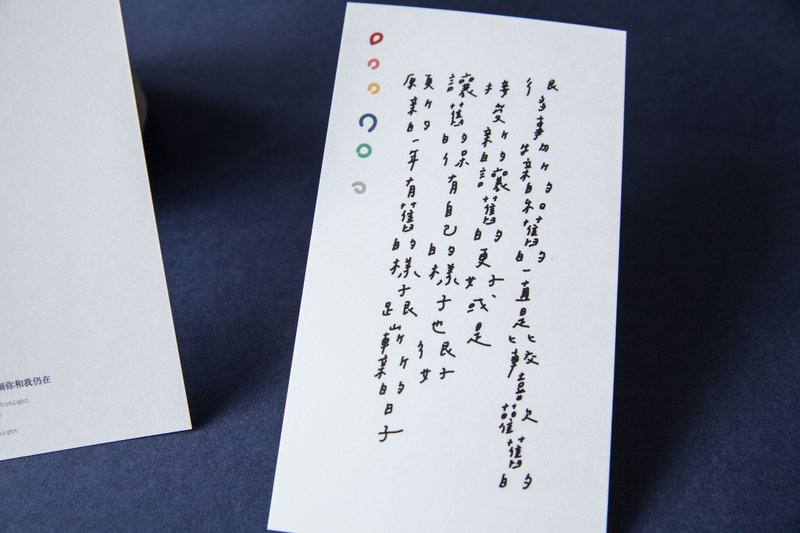 很多事物新的和舊的一直是比較喜歡舊的
接受新的讓舊的更好、或是
讓舊的保有自己的樣子也很好
願新的一年有舊的樣子跟嶄新的日子
你和我仍在
tonight
night